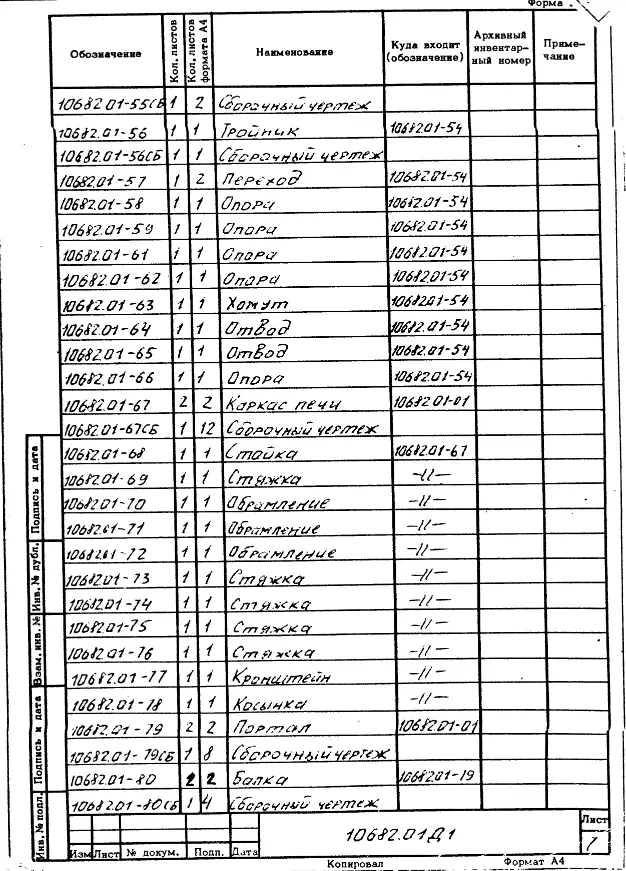 Форма
Обозначение Кол. листов Кол. листов формата А4 Наименование Куда входит (обозначение) Архивный инвентар- ный номер Приме- чание
10682.01-55СБ 1 2 Сборочный чертеж
10682.01-56 1 1 Тройник 10682.01-54
10682.01-56СБ 1 1 Сборочный чертеж
10682.01-57 1 2 Переход 10682.01-54
10682.01-58 1 1 Опора 10682.01-54
10682.01-59 1 1 Опора 10682.01-54
10682.01-61 1 1 Опора 10682.01-54
10682.01-62 1 1 Опора 10682.01-54
10682.01-63 1 1 Хомут 10682.01-54
10682.01-64 1 1 Отвод 10682.01-54
10682.01-65 1 1 Отвод 10682.01-54
10682.01-66 1 1 Опора 10682.01-54
10682.01-67 2 2 Каркас печи 10682.01-01
10682.01-67СБ 1 12 Сборочный чертеж
10682.01-68 1 1 Стойка 10682.01-67
10682.01-69 1 1 Стяжка -//-
10682.01-70 1 1 Обрамление -//-
10682.01-71 1 1 Обрамление -//-
10682.01-72 1 1 Обрамление -//-
10682.01-73 1 1 Стяжка -//-
10682.01-74 1 1 Стяжка -//-
10682.01-75 1 1 Стяжка -//-
10682.01-76 1 1 Стяжка -//-
10682.01-77 1 1 Кронштейн -//-
10682.01-78 1 1 Косынка -//-
10682.01-79 2 2 Портал 10682.01-01
10682.01-79СБ 1 8 Сборочный чертеж
10682.01-80 2 2 Балка 10682.01-79
10682.01-80СБ 1 4 Сборочный чертеж
Подпись и дата
Инв. № дубл.
Взам. инв. №
Подпись и дата
Инв. № подл.
10682.01Д1
Лист
7
Изм Лист № докум. Подп. Дата
Копировал Формат А4